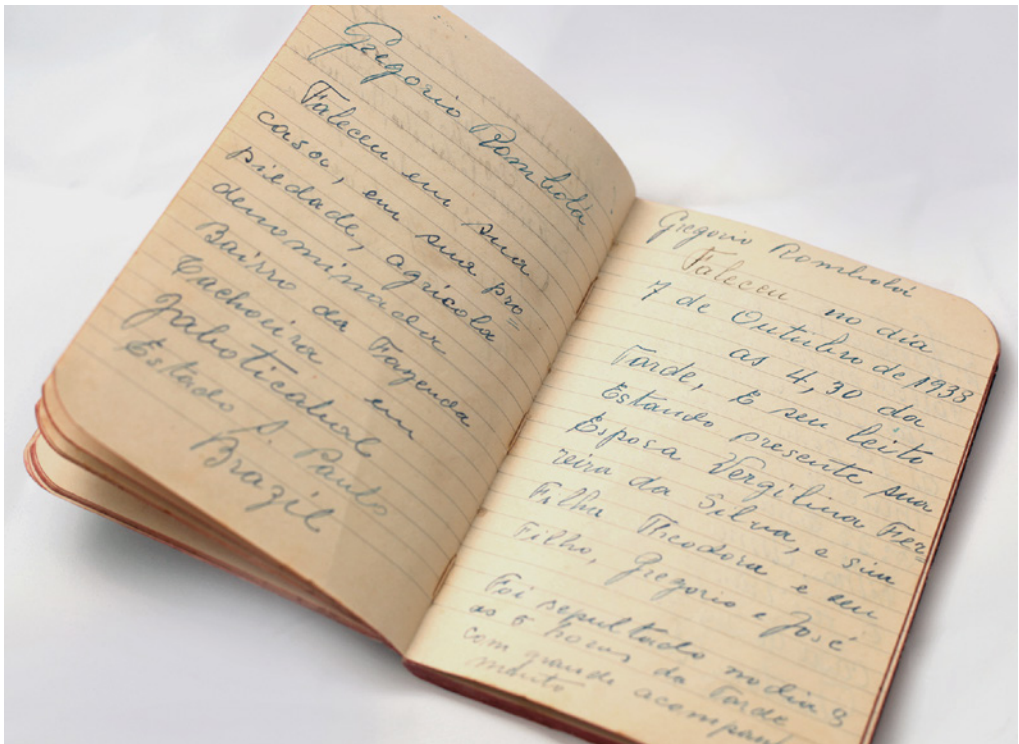 Gregorio Rombolá
Faleceu em sua
casa, em sua pro=
piedade, agricola
denominada
Bairro da Fazenda
Cachoeira em
Jaboticabal
Estado S. Paulo
Brazil
Gregorio Rombolá
Faleceu no dia
7 de Outubro de 1933
as 4,30 da
Tarde, E seu leito
Estando presente sua
Esposa Vergilina Fer=
reira da Silva, e sua
Filha Theodora e seu
Filho, Gregorio e José
Foi sepultado no dia
as horas da Tarde
com grande acompanha
mento